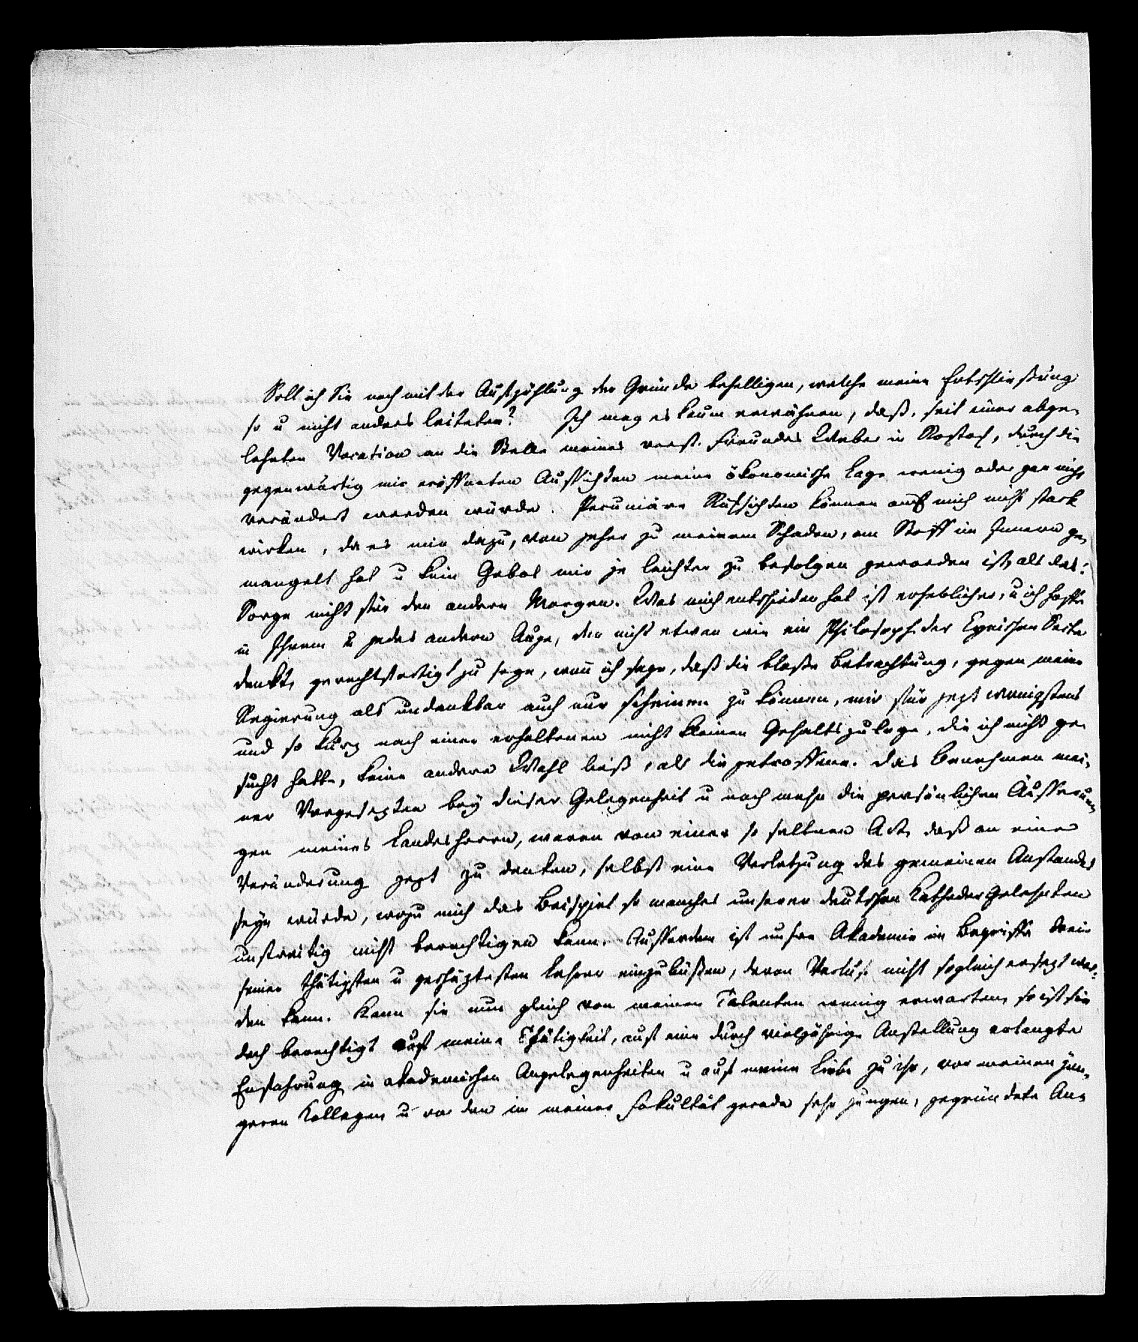 Soll ich Sie noch mit der Aufzählung der Gründe behelligen, welche meine Entschließung
so u nicht anders leiteten? Ich mag es kaum erwähnen, daß, seit einer abge-
lehnten Vocation an die Stelle meines verst. Freundes Weber in Rostock, durch die
gegenwärtig mir eröffneten Aussichten meine ökonomische Lage wenig oder gar nicht
verändert werden würde. Pecuniäre Rücksichten können auf mich nicht stark
wirken, da es mir dazu, von jeher zu meinem Schaden, am Stoff im Innern ge-
mangelt hat u kein Gebot mir je leichter zu befolgen geworden ist, als das:
Sorge nicht für den andern Morgen. Was mich entschieden hat ist erheblicher, u ich hoffe
in Ihrem u jedes andern Auge, der nicht etwan wie ein Philosoph der Cynischen Secte
denkt, gerechtfertigt zu seyn, wenn ich sage, daß die bloße Betrachtung, gegen meine
Regierung als undankbar auch nur scheinen zu können, mir für jezt wenigstens
und so kurz nach einer erhaltenen nicht kleinen Gehaltszulage, die ich nicht ge-
sucht hatte, keine andere Wahl ließ, als die getroffene. Das Benehmen mei-
ner Vorgesezten bey dieser Gelegenheit u noch mehr die persönlichen Äusserun-
gen meines Landesherrn, waren von einer so seltnen Art, daß an eine
Veränderung jezt zu denken, selbst eine Verletzung des gemeinen Anstandes
seyn würde, wozu mich das Beispiel so mancher unserer deutschen Kathedergelehrten
unstreitig nicht berechtigen kann. Ausserdem ist unsre Akademie im Begriffe drei
seiner thätigsten u geschäztesten Lehrer einzubüßen, deren Verlust nicht sogleich ersezt wer-
den kann. Kann sie nun gleich von meinen Talenten wenig erwarten, so ist sie
doch berechtigt auf meine Thätigkeit, auf eine durch vieljährige Anstellung erlangte
Erfahrung in akademischen Angelegenheiten u auf meine Liebe zu ihr, vor meinen jün-
geren Kollegen u vor den in meiner Fakultät gerade sehr jungen, gegründete An-